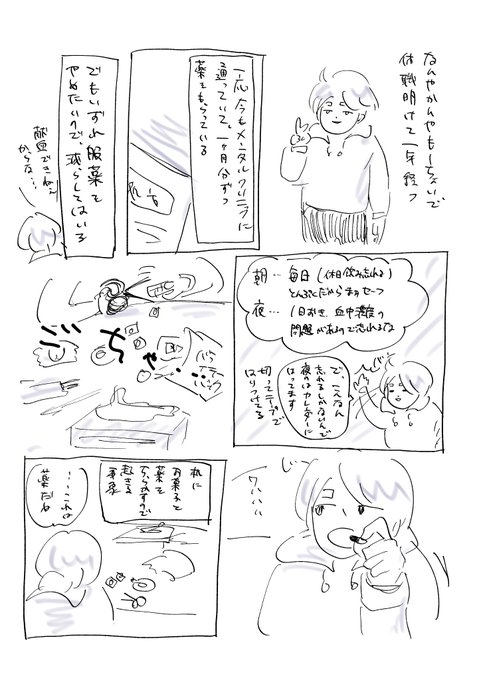 なんやかんやもーちょいで
休職明けて一年経つ
一応今もメンタルクリニックに
通っていて、一ヶ月分ずつ
薬をもらっている
でもいずれ服薬を
やめたいので、減らしてはいる
献血できねぇ
からな…
朝…毎日(休日飲み忘れる)
とんぷくだからまあセーフ
夜…1日おき 血中濃度の
問題があるので忘れるな
で、こんなん
忘れるしかないんで
夜のはカレンダーに
はってます
切ってテープで
はりつけてる
ごちゃ
バラエティ
パック
机に
お菓子と
薬を
ちらかすので
起きる
事象
……これは
薬だね
ワハハハ